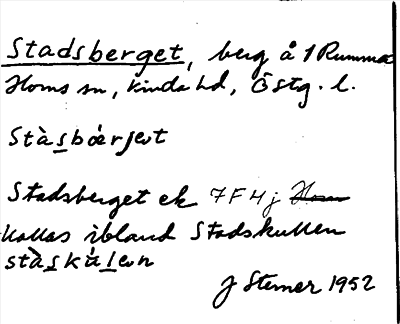 Stadsberget, berg å 1 Rumma
Horns sn, Kinda hd, Östg. l.
Stàsbœ́rjət
Stadsberget ek 7F4j Horn
kallas ibland Stadskullen
stàskúlən
J Sterner 1952